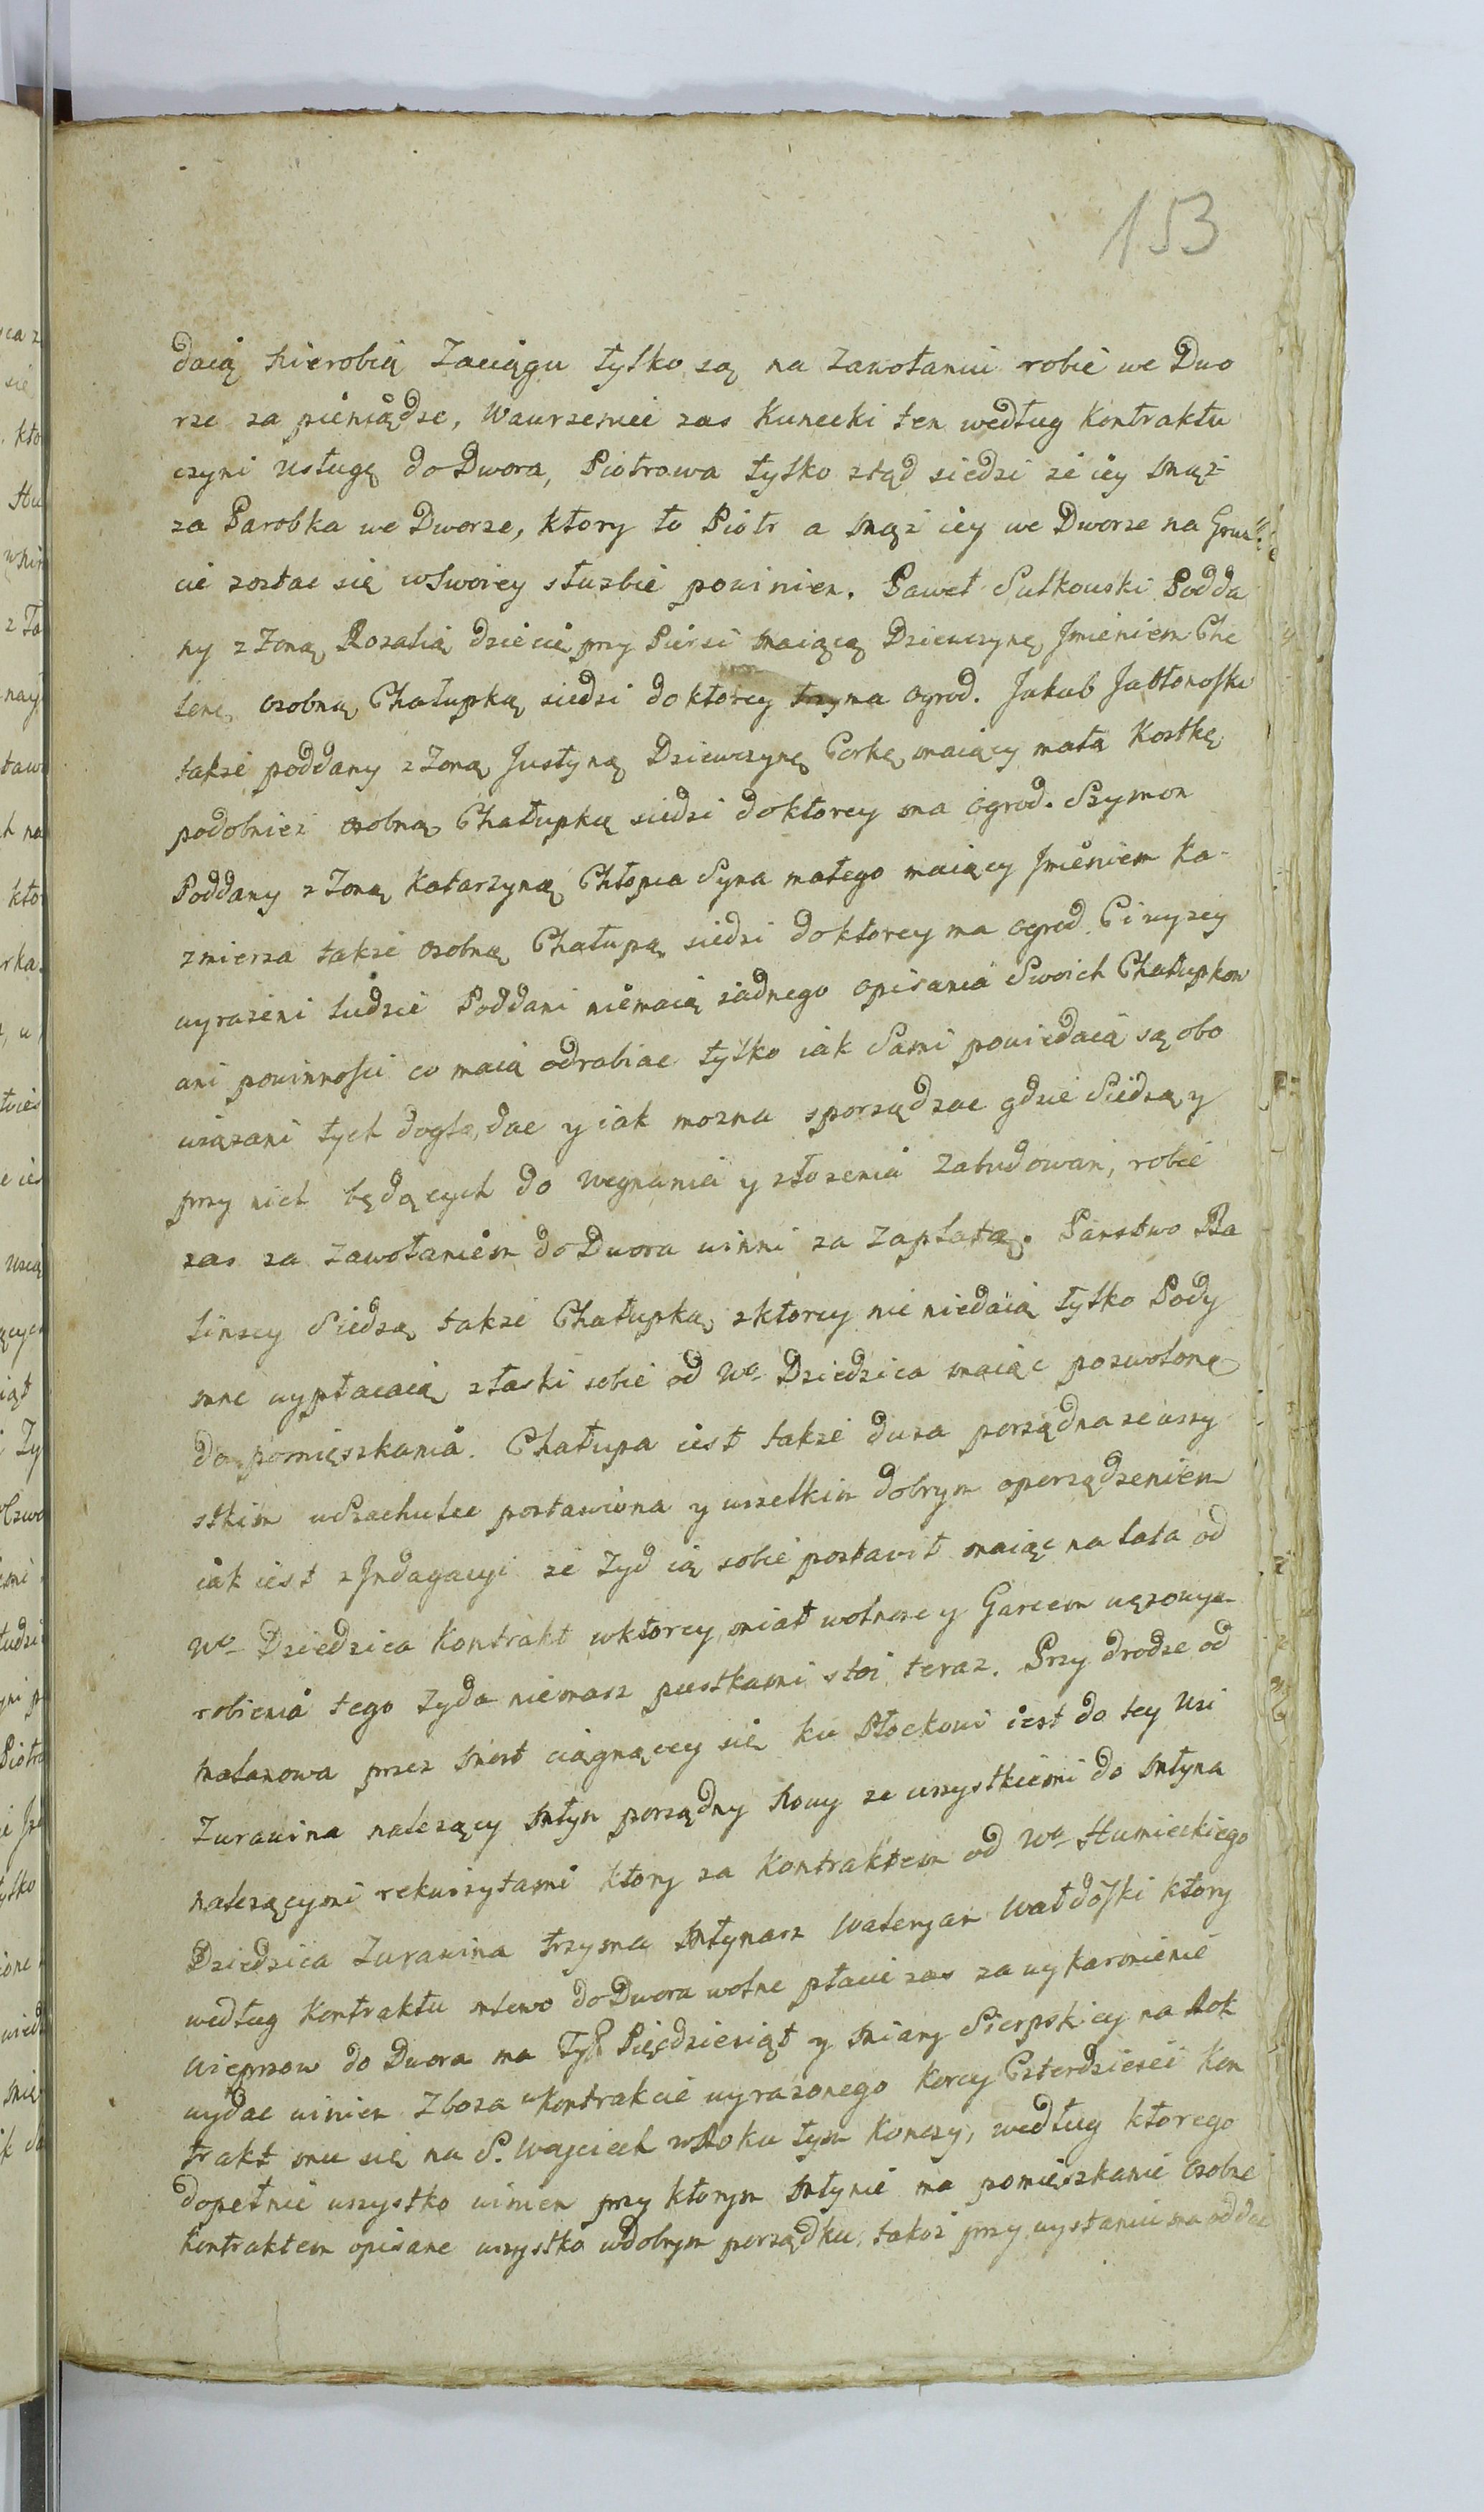 153
daią nierobią Zaciągu tylko są na zawołaniu robić we Dwo
rze za pieniądze, Wawrzeniec zas Kunecki ten według Kontraktu
czyni usługę do Dwora, Piotrowa tylko ztąd siedzi ze iey mąż
za Parobka we Dworze, ktory to Piotr a mąż iey we Dworze na Grun
cie zostac się w Swoiey słuzbie powinien. Paweł Sulkowski Podda
ny z Zoną Rozalią dziecie przy Piersi maiącą Dziewczynę Jmieniem Che
lenę osobną Chałupką siedzi do ktorey trzyma ogrod. Jakub Jabłonoski
takze poddany z Zoną Justyną Dziewczynę Corkę maiący mała Kostkę
podobniez osobną Chałupką siedzi do ktorey ma ogrod. Szymon
Poddany z Zoną Katarzyną Chłopca Syna małego maiący Jmieniem Ka-
zmierza takze osobną Chałupą siedzi do ktorey ma ogrod. Ci wyzey
wyrazeni ludzie Poddani niemaią zadnego opisania Swoich Chałupkow
ani powinnosci co maią odrabiac tylko iak Sami powiedaią są obo
wiązani tych doglądac y iak mozna sporządzac gdzie Siedzą y
przy nich będących do Wegnania y złozenia Zabudowan, robić
zas za zawołaniem do Dwora winni za Zapłatą. Panstwo Ba
linscy Siedzą takze Chałupką z ktorey nic niedaią tylko Pody
mne wypłacaią z łaski sobie od Wo Dziedzica maiąc pozwolone
do pomięszkania. Chałupa iest takze duza porządna ze wszy
stkim w Szachulec postawiona y wszelkim dobrym oporządzeniem
iak iest z Jndagacyi ze Zyd ią sobie postawił maiąc na lata od
Wo Dziedzica Kontrakt w ktorey miał wolnosc y Garcem
robienia tego Zyda niemasz pustkami stoi teraz. Przy drodze od
Malanowa przez most ciągnącey się ku Płockowi iest do tey Wsi
Zurawina nalezący Młyn porządny Nowy ze wszystkiemi do Młyna
nalezącymi rekwizytami ktory za Kontraktem od Wo Humieckiego
Dziedzica Zurawina trzyma Młynarz Waleryan Wałdoski ktory
według Kontraktu mlewo do Dwora wolne płacic zas za wykarmienie
Wieprzow do Dwora ma Tyf Pięcdziesiąt y miary Sierpskiey na Rok
wydac winien Zboza w Kontrakcie wyrazonego Korcy Czterdziesci Kon
trakt mu się na S. Woyciech w Roku tym Konczy, według ktorego
dopełnic wszystko winien przy ktorym Młynie ma pomięszkanie osobne
Kontraktem opisane wszystko w dobrym porządku, takoz przy wystaniu ma oddac